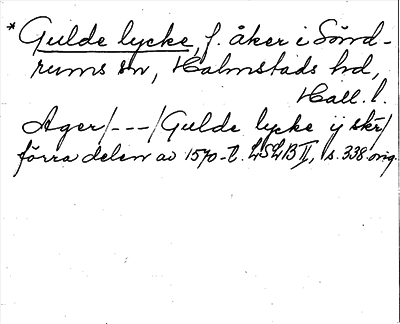 * Gulde lycke, f. åker i Sönd-
rums sn, Halmstads hd,
Hall. l.
Ager/---/Gulde lycke ij skr/
förra delen av 1570-t. LSLB II, s. 338 orig.